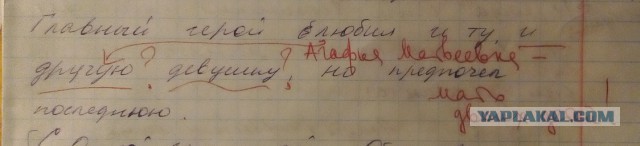 Главный герой влюбил и ту и
другую? девушку?, но предпочел
Агафья Матвеевна —
последнюю.
мать
YAPLAKAL.COM